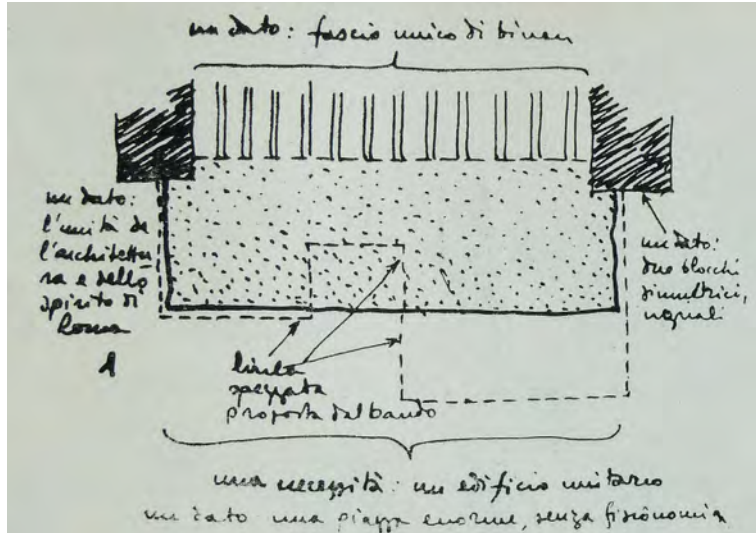 un dato: fascio unico di binari
un dato:
l'unità de
l'architettu
ra e dello
spirito di
Roma
1
un dato:
due blocchi
simmetrici,
uguali
linea
spezzata
proposta dal bando
una necessità: un edificio unitario
un dato una piazza enorme, senza fisionomia